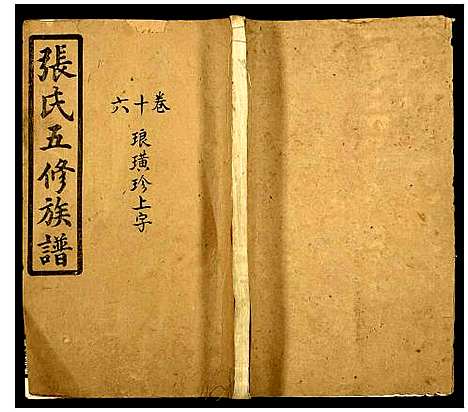 張氏五修族譜
卷十六
琅璜珍上字